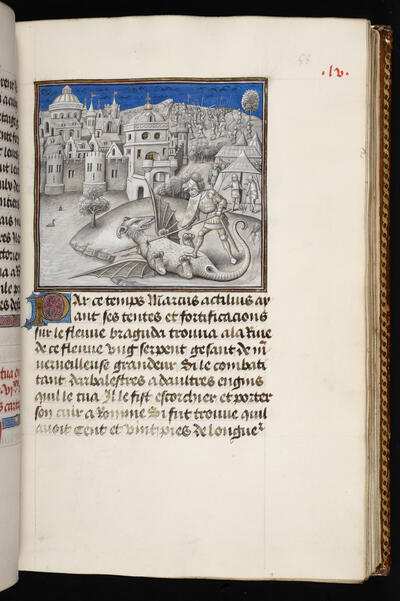 58
·lv·
Par ce temps Marcus actilius ay
ant ses tentes et fortificacions
sur le fleuve bragada trouva a la Rive
de ce fleuve ung serpent gesant de
merveilleuse grandeur Si le combati
tant darbalestres a daultres engins
quil le tua Il le fist escorchier et porter
son cuir a Romme Si fut trouve quil
avoit Cent et vint pies de longue